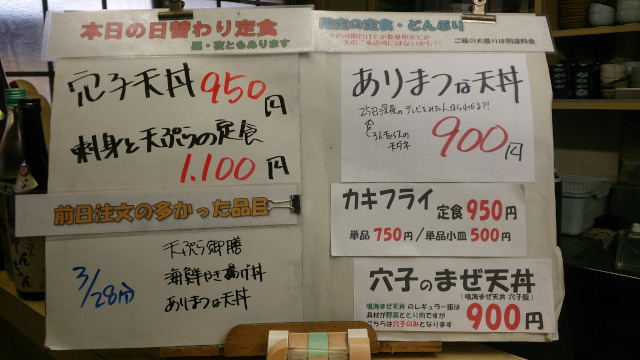 本日の日替わり定食
昼・夜ともあります
穴子天丼 950円
刺身と天ぷらの定食
1.100円
前日注文の多かった品目
3/28分
天ぷら御膳
海鮮かき揚げ丼
ありまつな天丼
限定の定食・どんぶり
ご飯の大盛りは別途料金
ありまつな天丼
25日深夜のテレビをみた人ならわかる?!
900円
カキフライ 定食950円
単品750円/単品小皿500円
穴子のまぜ天丼
(鳴海まぜ天丼 穴子版)
鳴海まぜ天丼 のレギュラー版は
具材が野菜ととり肉ですが
こちらは穴子のみとなります
900円